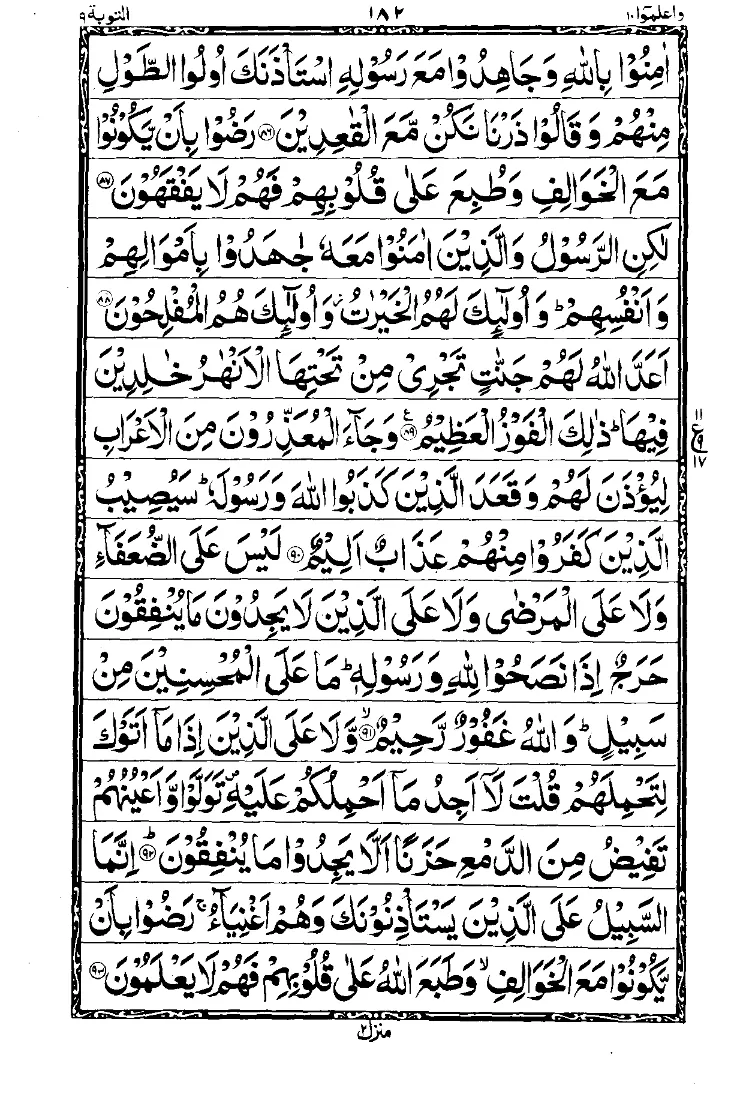 واعلموا١٠ ١٨٢ التوبة٩
اٰمِنُوۡا بِاللّٰهِ وَجَاهِدُوۡا مَعَ رَسُوۡلِهِ اسۡتَاۡذَنَكَ اُولُوا الطَّوۡلِ
مِنۡهُمۡ وَقَالُوۡا ذَرۡنَا نَكُنۡ مَّعَ الۡقٰعِدِيۡنَ ﴿٨٦﴾ رَضُوۡا بِاَنۡ يَّكُوۡنُوۡا
مَعَ الۡخَوَالِفِ وَطُبِعَ عَلٰى قُلُوۡبِهِمۡ فَهُمۡ لَا يَفۡقَهُوۡنَ ﴿٨٧﴾
لٰكِنِ الرَّسُوۡلُ وَالَّذِيۡنَ اٰمَنُوۡا مَعَهٗ جٰهَدُوۡا بِاَمۡوَالِهِمۡ
وَاَنۡفُسِهِمۡ ؕ وَاُولٰٓئِكَ لَهُمُ الۡخَيۡرٰتُ ۫ وَاُولٰٓئِكَ هُمُ الۡمُفۡلِحُوۡنَ ﴿٨٨﴾
اَعَدَّ اللّٰهُ لَهُمۡ جَنّٰتٍ تَجۡرِىۡ مِنۡ تَحۡتِهَا الۡاَنۡهٰرُ خٰلِدِيۡنَ
فِيۡهَا ؕ ذٰلِكَ الۡفَوۡزُ الۡعَظِيۡمُ ﴿٨٩﴾ ع وَجَآءَ الۡمُعَذِّرُوۡنَ مِنَ الۡاَعۡرَابِ
١١ ع ٩ ١٧
لِيُؤۡذَنَ لَهُمۡ وَقَعَدَ الَّذِيۡنَ كَذَبُوا اللّٰهَ وَرَسُوۡلَهٗ ؕ سَيُصِيۡبُ
الَّذِيۡنَ كَفَرُوۡا مِنۡهُمۡ عَذَابٌ اَلِيۡمٌ ﴿٩٠﴾ لَيۡسَ عَلَى الضُّعَفَآءِ
وَلَا عَلَى الۡمَرۡضٰى وَلَا عَلَى الَّذِيۡنَ لَا يَجِدُوۡنَ مَا يُنۡفِقُوۡنَ
حَرَجٌ اِذَا نَصَحُوۡا لِلّٰهِ وَرَسُوۡلِهٖ ؕ مَا عَلَى الۡمُحۡسِنِيۡنَ مِنۡ
سَبِيۡلٍ ؕ وَاللّٰهُ غَفُوۡرٌ رَّحِيۡمٌ ۙ﴿٩١﴾ وَّلَا عَلَى الَّذِيۡنَ اِذَا مَاۤ اَتَوۡكَ
لِتَحۡمِلَهُمۡ قُلۡتَ لَاۤ اَجِدُ مَاۤ اَحۡمِلُكُمۡ عَلَيۡهِ ۪ تَوَلَّوۡا وَّاَعۡيُنُهُمۡ
تَفِيۡضُ مِنَ الدَّمۡعِ حَزَنًا اَلَّا يَجِدُوۡا مَا يُنۡفِقُوۡنَ ؕ﴿٩٢﴾ اِنَّمَا
السَّبِيۡلُ عَلَى الَّذِيۡنَ يَسۡتَاۡذِنُوۡنَكَ وَهُمۡ اَغۡنِيَآءُ ۚ رَضُوۡا بِاَنۡ
يَّكُوۡنُوۡا مَعَ الۡخَوَالِفِ ۙ وَطَبَعَ اللّٰهُ عَلٰى قُلُوۡبِهِمۡ فَهُمۡ لَا يَعۡلَمُوۡنَ ﴿٩٣﴾
منزل٢